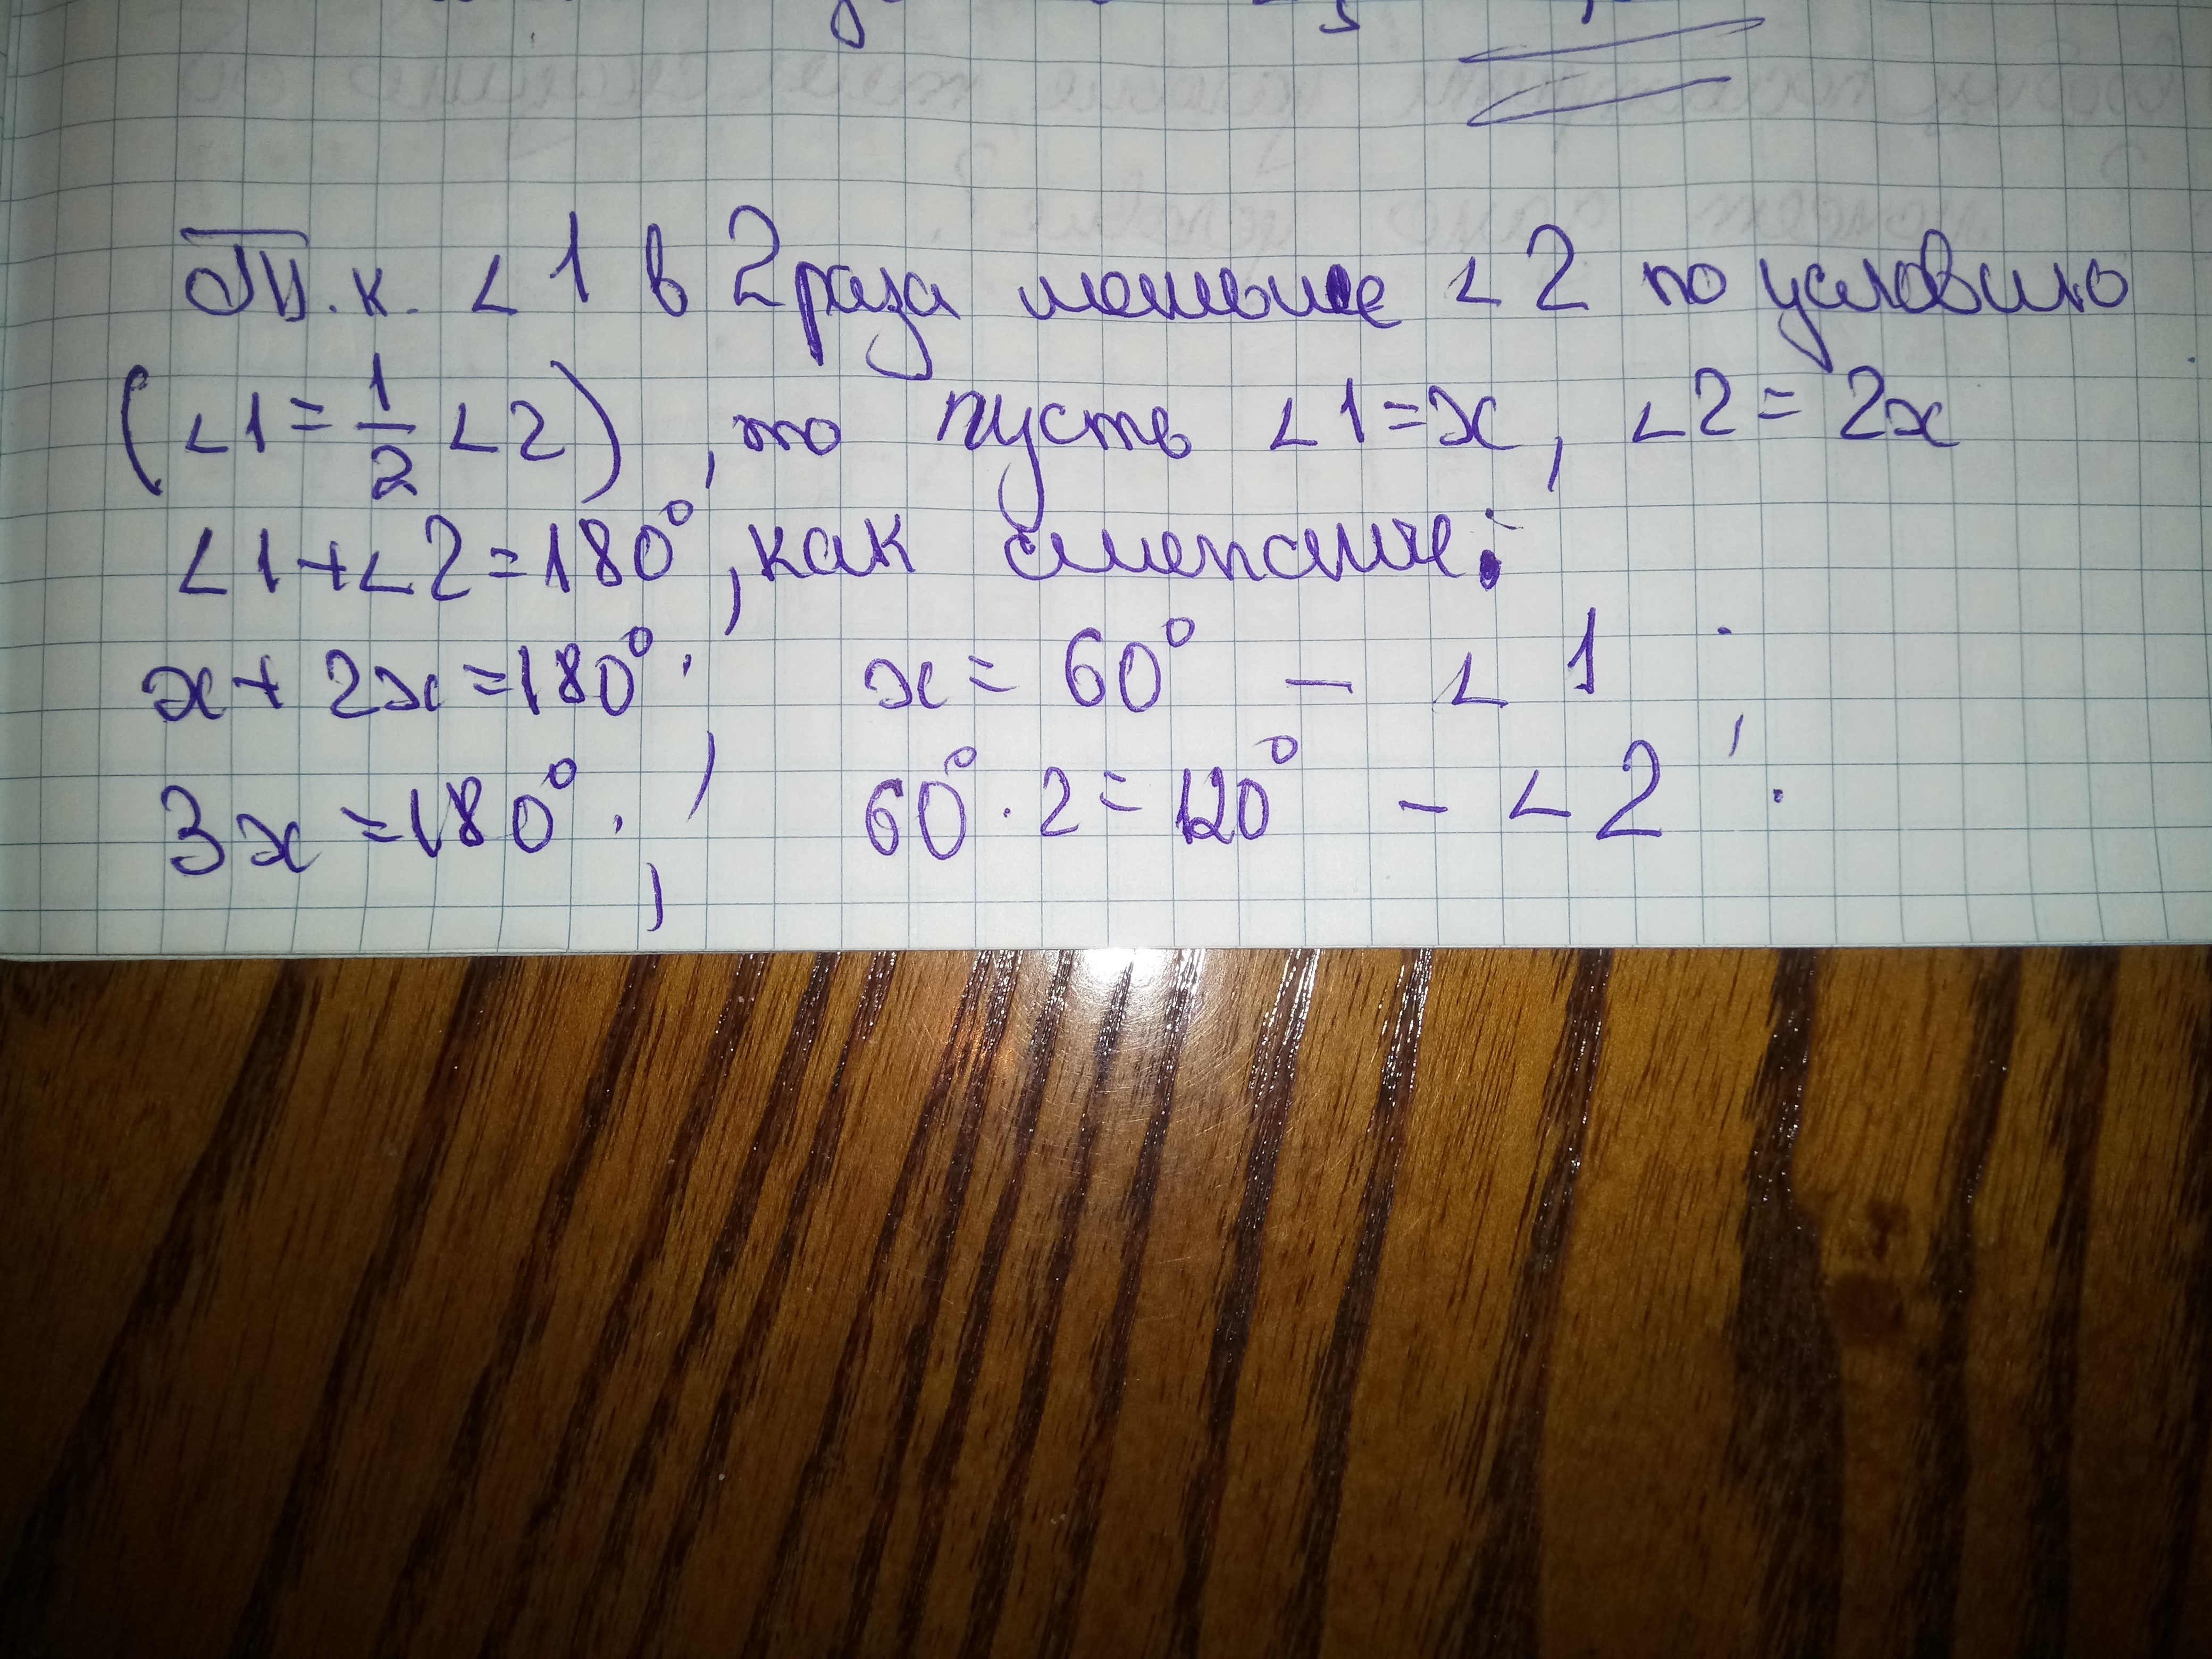 Т.к. ∠1 в 2 раза меньше ∠2 по условию
(∠1 = 1/2 ∠2), то пусть ∠1 = x, ∠2 = 2x
∠1 + ∠2 = 180°, как смежные:
x + 2x = 180°; x = 60° – ∠1;
3x = 180°; 60° · 2 = 120° – ∠2.